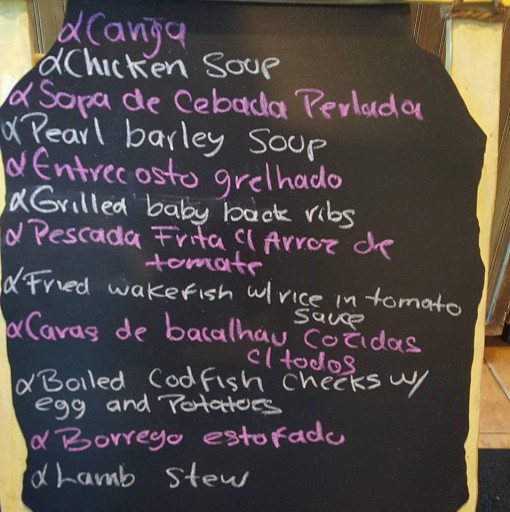 αCanja
αChicken Soup
αSopa de Cebada Perlada
αPearl barley Soup
αEntrecosto grelhado
αGrilled baby back ribs
αPescada Frita c/ Arroz de
tomate
αFried wakefish w/rice in tomato
Sauce
αCaras de bacalhau Cozidas
c/ todos
αBoiled Codfish Cheeks w/
egg and Potatoes
αBorrego estofado
αLamb Stew